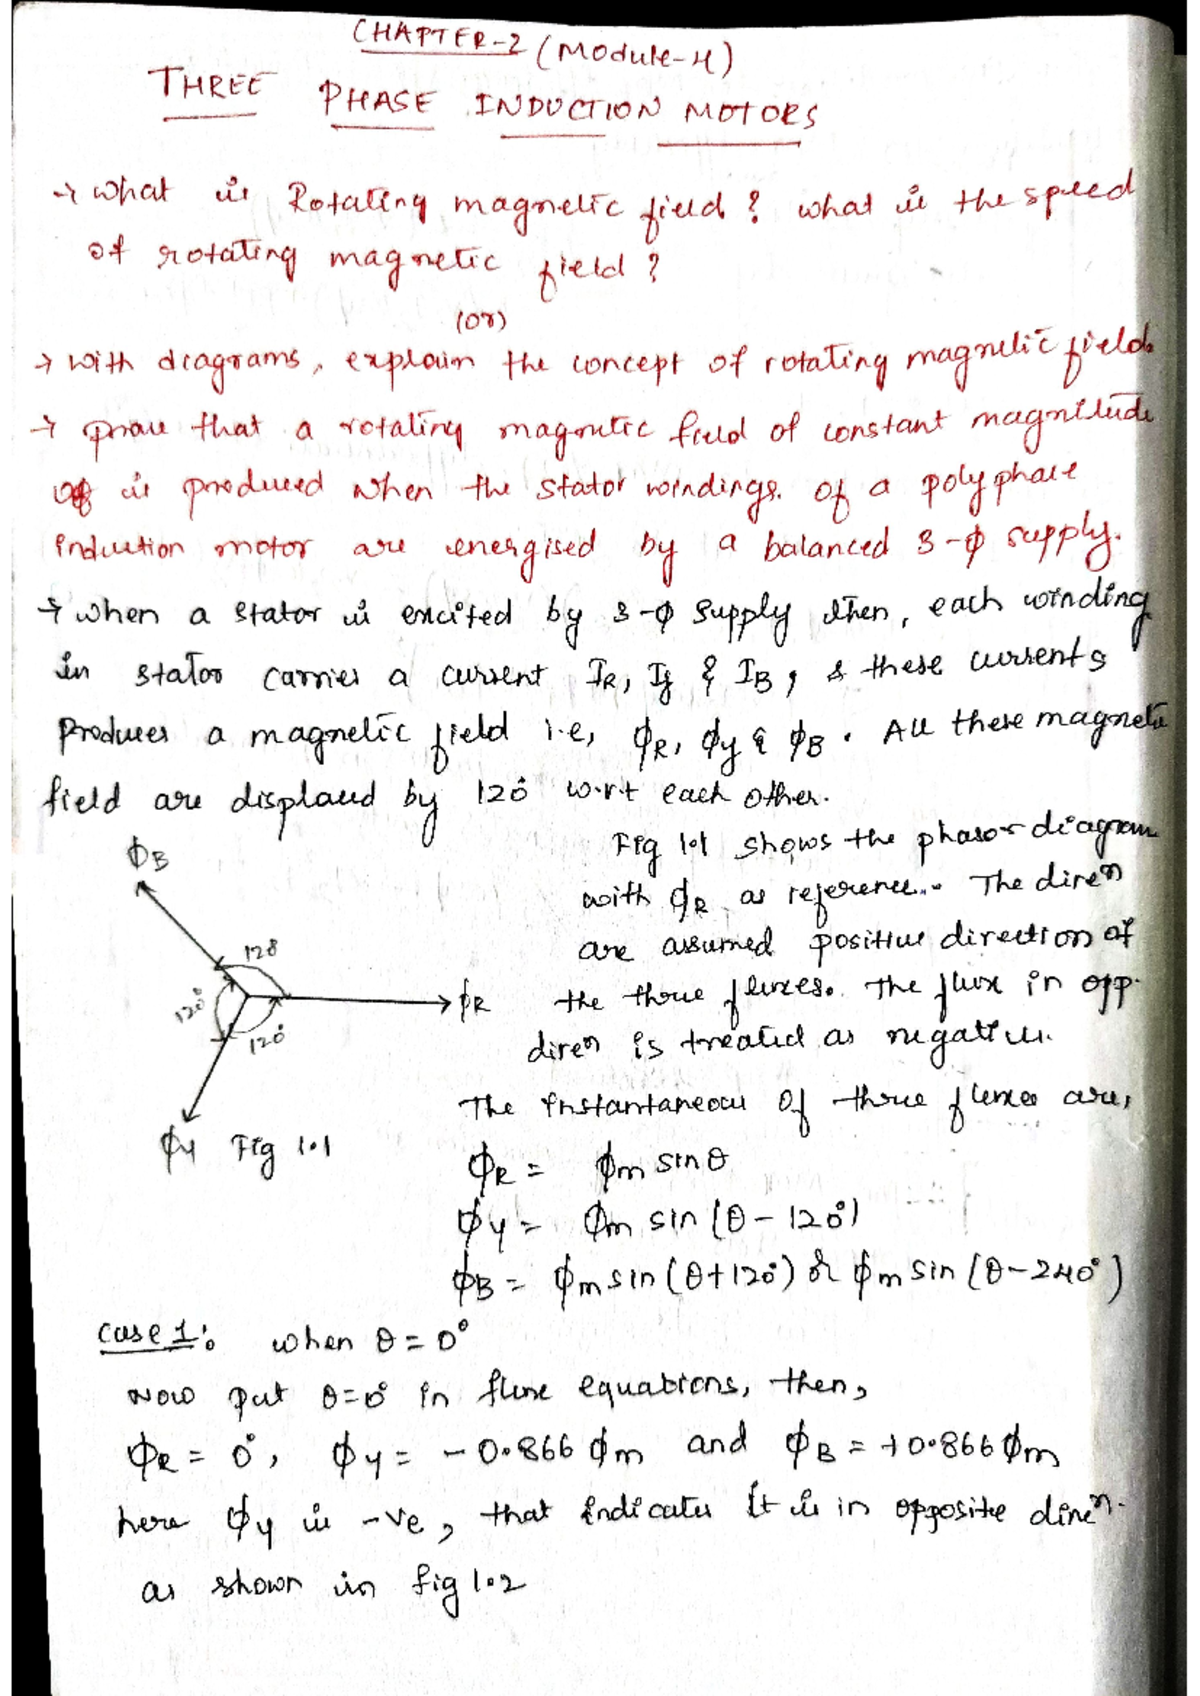 CHAPTER-2 (Module-4)
THREE PHASE INDUCTION MOTORS
→ what is Rotating magnetic field ? what is the speed
of rotating magnetic field ?
(or)
→ with diagrams, explain the concept of rotating magnetic field.
→ prove that a rotating magnetic field of constant magnitude
is produced when the stator windings. of a polyphase
induction motor are energised by a balanced 3-ϕ supply.
→ when a stator is excited by 3-ϕ supply then, each winding
in stator carries a current IR, Iy & IB, & these currents
produces a magnetic field i.e, ϕR, ϕy & ϕB. All these magnetic
field are displaced by 120° w.r.t each other.
Fig 1.1 shows the phasor diagram
with ϕR as reference. The diren
are assumed positive direction of
the three fluxes. The flux in opp.
diren is treated as negative.
The instantaneous of three fluxes are,
ϕB
120°
120°
120°
ϕR
ϕy Fig 1.1
ϕR = ϕm sin θ
ϕy = ϕm sin (θ - 120°)
ϕB = ϕm sin (θ+120°) or ϕm sin (θ-240°)
case 1: when θ = 0°
Now put θ=0° in flux equations, then,
ϕR = 0°, ϕy = -0.866 ϕm and ϕB = +0.866 ϕm
here ϕy is -ve, that indicates it is in opposite diren.
as shown in fig 1.2